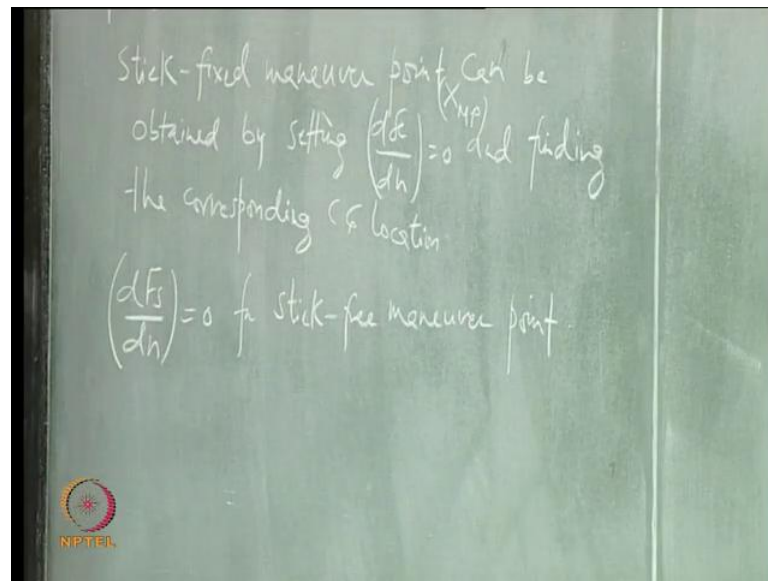 Stick-fixed maneuver point can be
(X_MP)
obtained by setting (dδe/dn) = 0 and finding
the corresponding CG location.
(dFs/dn) = 0 for stick-free maneuver point.
NPTEL